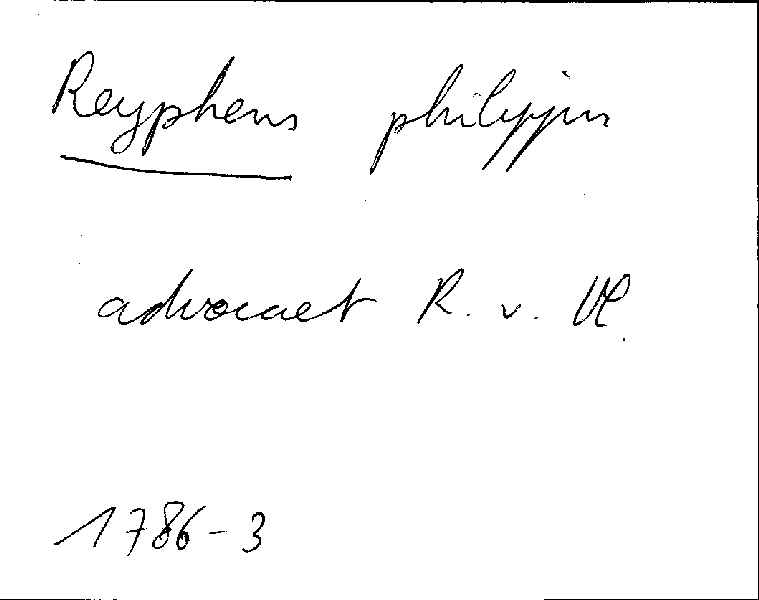 Reyphens philippus
advocaet R. v. Vl.
1786-3